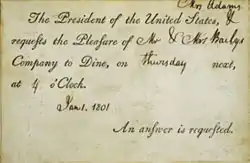 Mrs Adams.
The President of the United States, &
requests the Pleasure of Mr & Mrs Baily's
Company to Dine, on thursday next,
at 4 o'Clock.
Jan 1. 1801
An answer is requested.